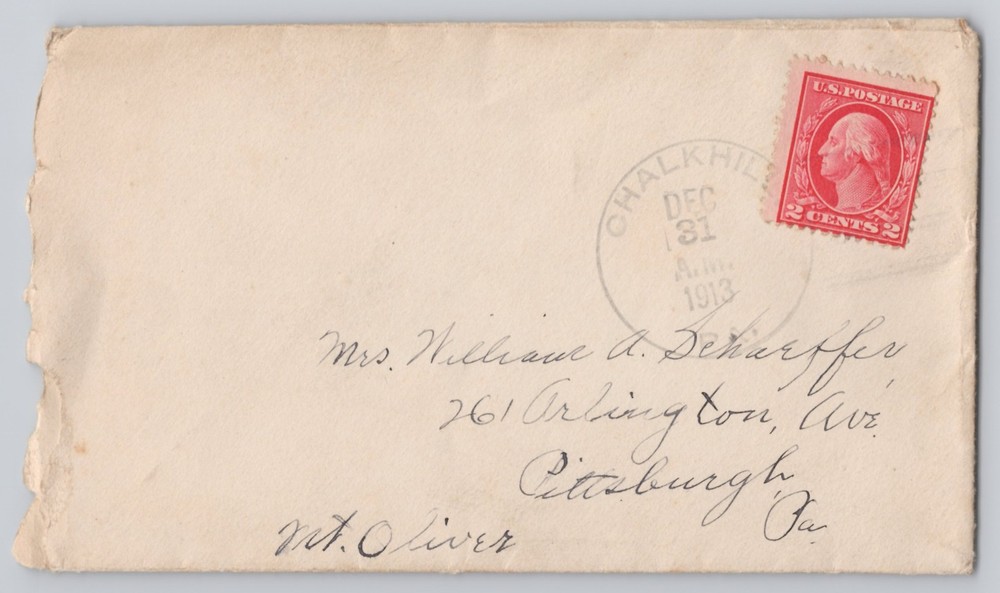 U.S. POSTAGE
2 CENTS 2
CHALKHILL
DEC
31
A.M.
1913
PA.
Mrs. William A. Schaeffer,
261 Arlington, Ave.
Pittsburgh,
Pa.
Mt. Oliver